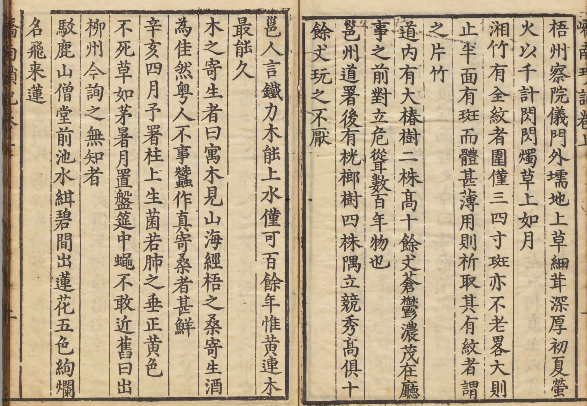 梧州察院儀門外壖地上草細茸深厚初夏螢
火以千計閃閃燭草上如月
湘竹有全紋者圍僅三四寸斑亦不老畧大則
止半面有斑而體甚薄用則析取其有紋者謂
之片竹
道内有大椿樹二株髙十餘丈蒼鬱濃茂在廳
事之前對立危聳數百年物也
邕州道署後有桄榔樹四株隅立競秀髙俱十
餘丈玩之不厭
邕人言鐵力木能上水僅可百餘年惟黄連木
最能久
木之寄生者曰寓木見山海經梧之桑寄生酒
為佳然粤人不事蠶作真寄桑者甚鮮
辛亥四月予署柱上生菌若肺之垂正黄色
不死草如茅暑月置盤筵中蠅不敢近舊曰出
柳州今詢之無知者
駮鹿山僧堂前池水紺碧間出蓮花五色絢爛
名飛来蓮